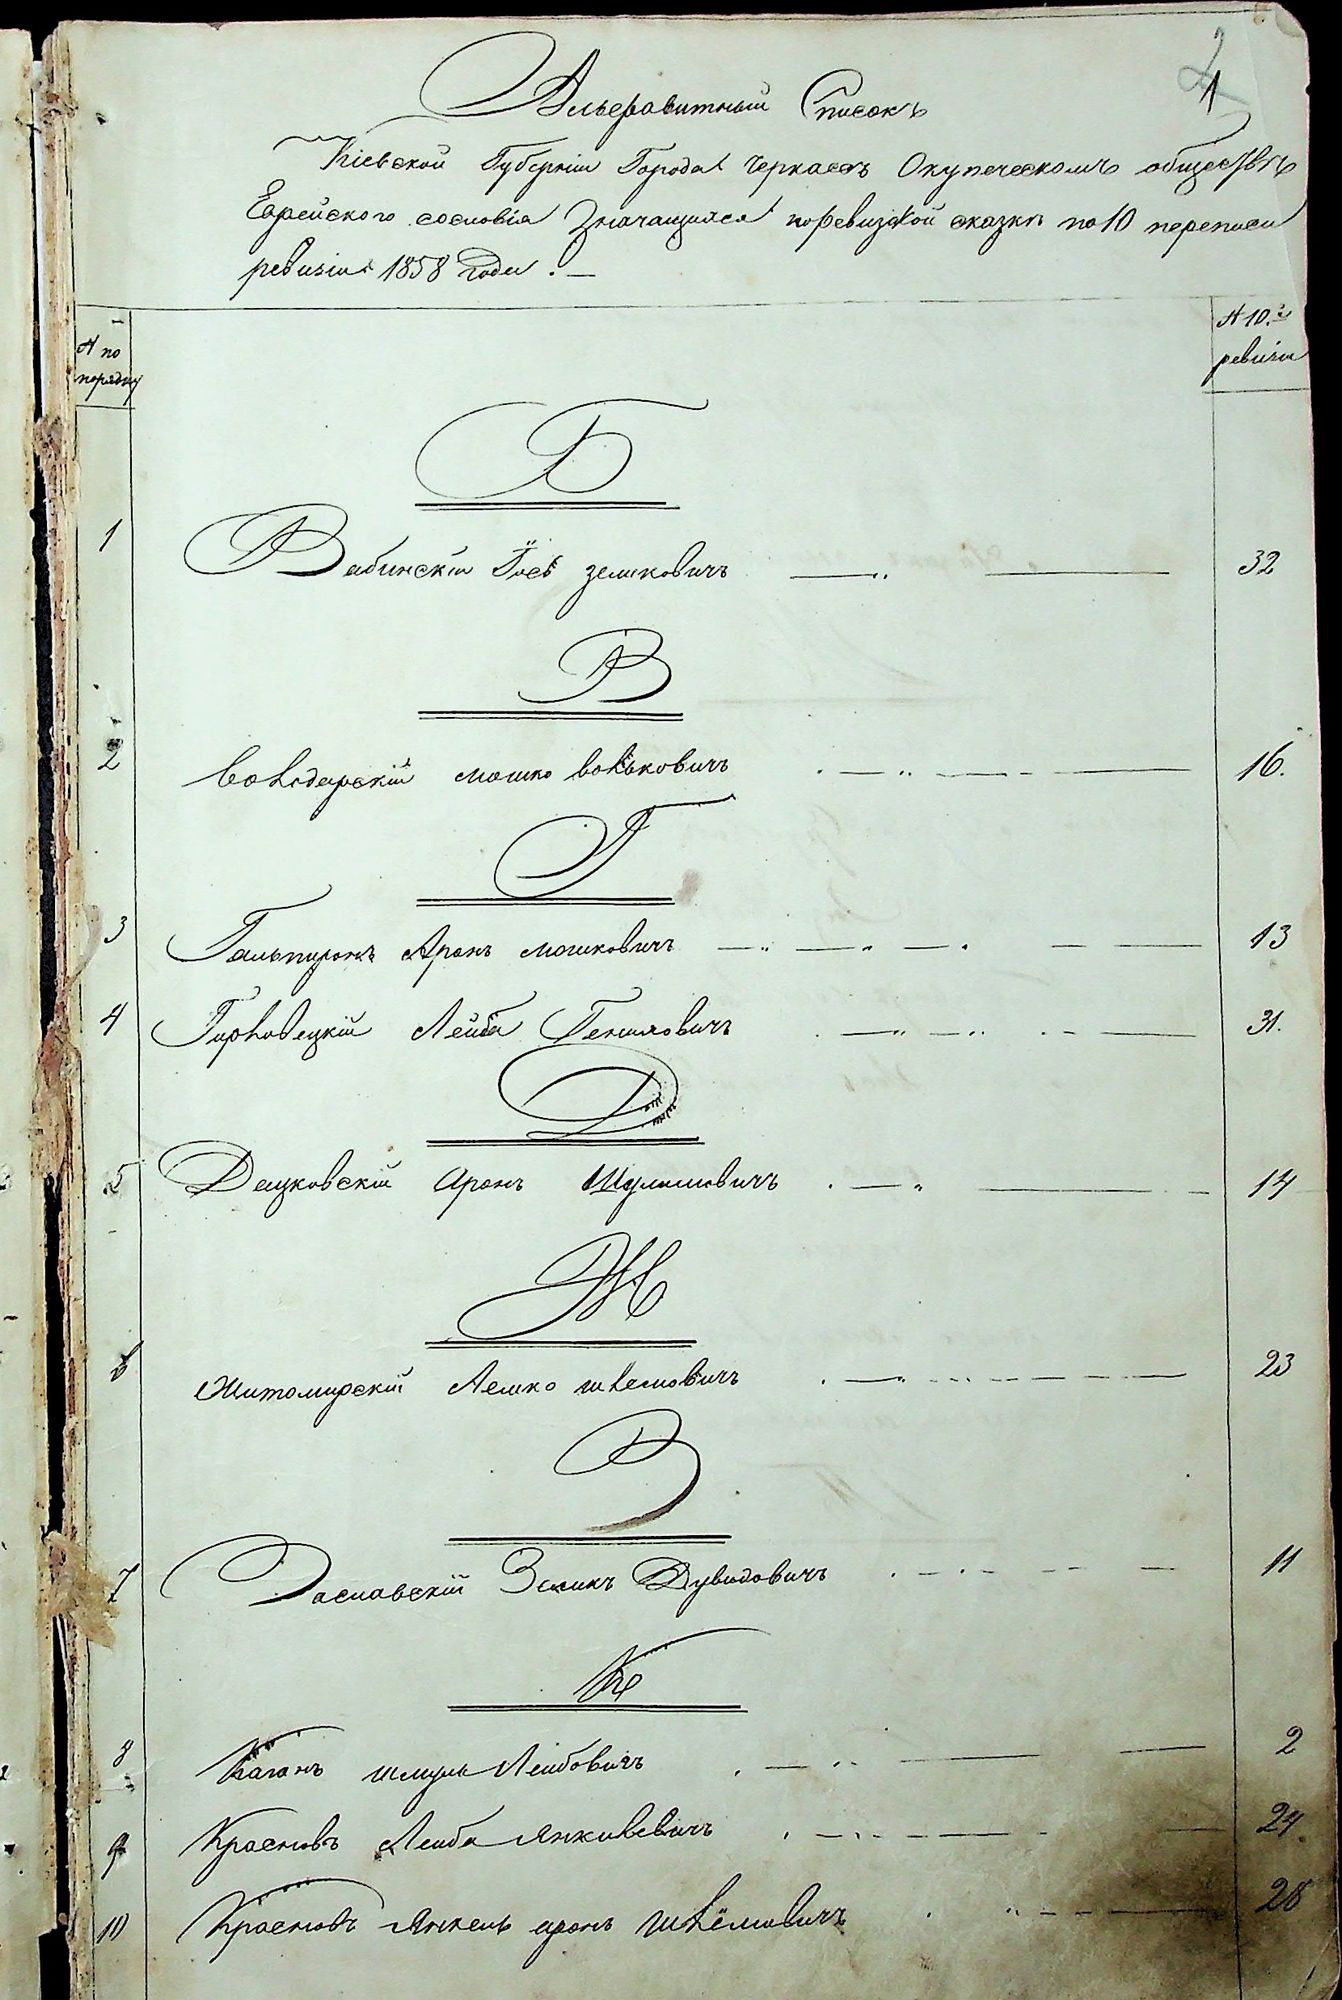 1
Альфавитный Списокъ
Кіевской Губерніи Города Черкасъ Окупеческомъ обществѣ
Еврейского сословія Значащихся поревизской сказкѣ по 10 переписи
ревизіи 1858 Года.—
№ по порядку
№ 10й ревизіи
Б
1 Бабинскій Іосъ Зеликовичъ 32
В
2 Володарскій мошко вольковичъ 16.
Г
3 Гальпиронъ Аронъ мошковичъ 13
4 Лейба 31.
Д
5 Дацковскій аронъ Шулимовичъ 14
Ж
6 Житомирскій Лейко шлемовичъ 23
З
7 Заславскій Зеликъ Дувидовичъ 11
К
8 Каганъ шмуль Лейбовичъ 2
9 Красновъ Лейба Янкилевичъ 24
10 Красновъ Янкель аронъ шлёмовичъ 28